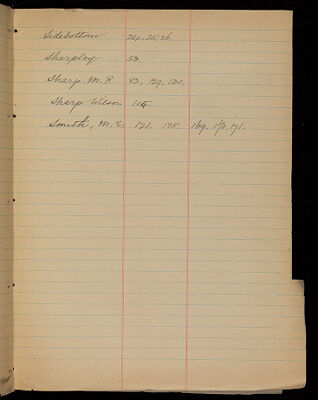 Sidebottom 24, 25, 26.
Sharpley 53.
Sharp, M. R. 83, 129, 130.
Sharp Wilson 104.
Smith, M. E. 121. 128. 169. 170, 171.